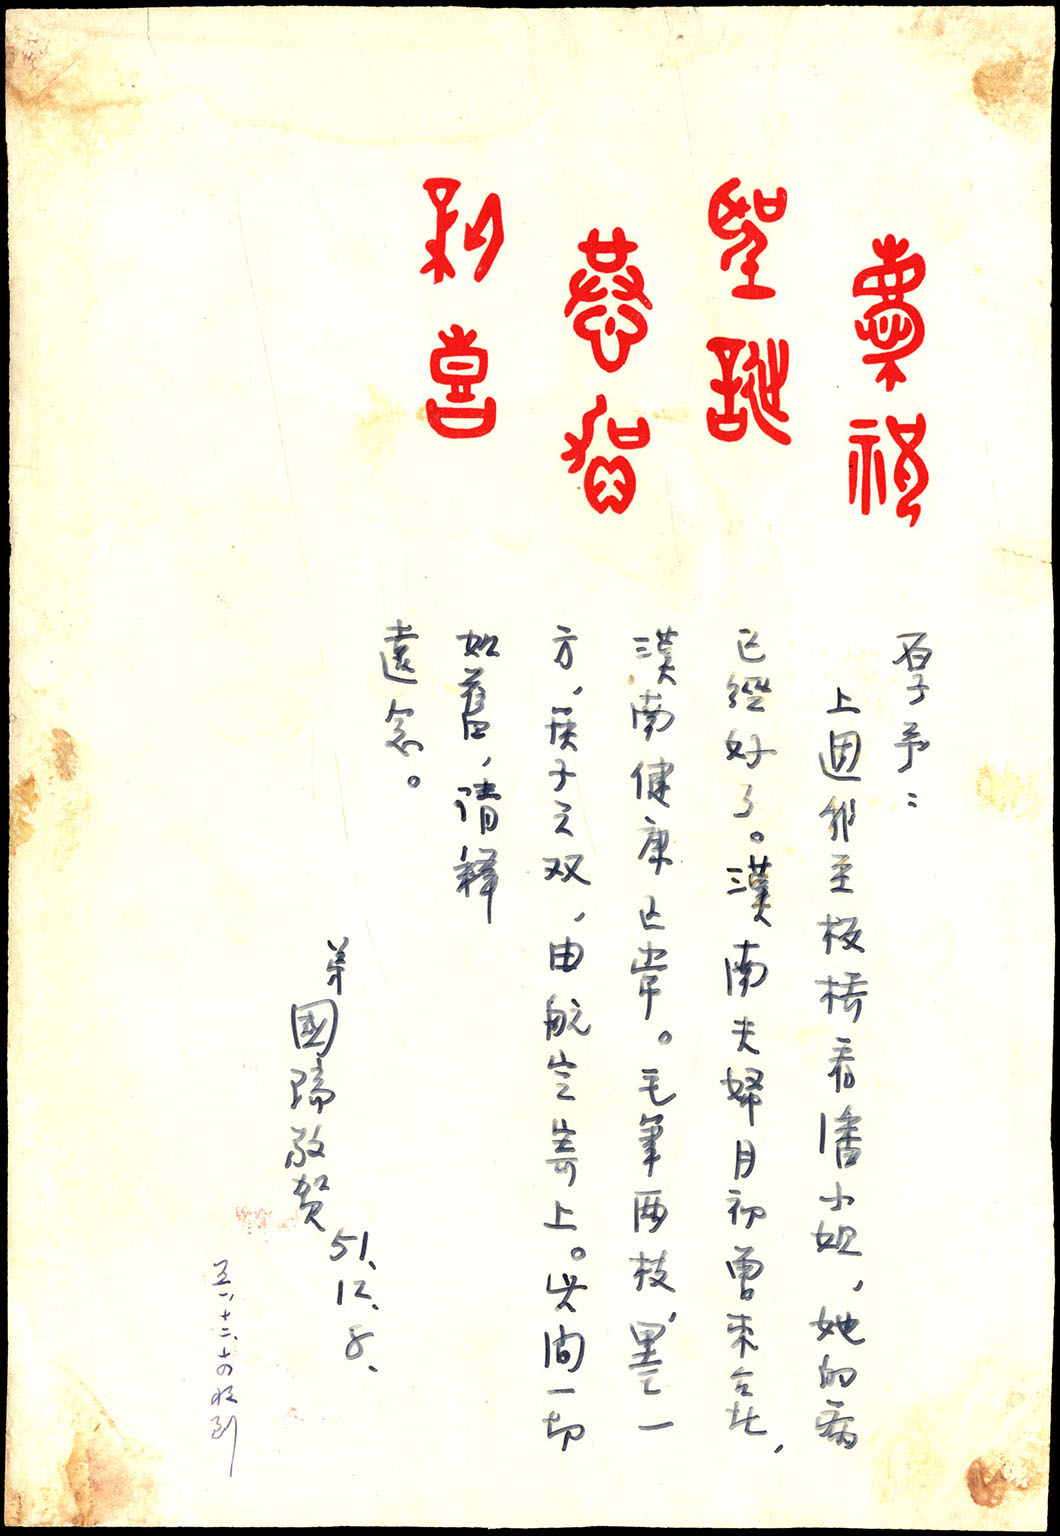 聖誕
恭賀
上週我至板橋看潘小姐，她的病
已經好了。漢南夫婦月初曾來台北，
漢南健康正常。毛筆兩枝，墨一
方，筷子之双，由航空寄上。此間一切
如舊，請釋
遠念。
弟
國 敬賀
51、12、8、
五一、十二、十四收到